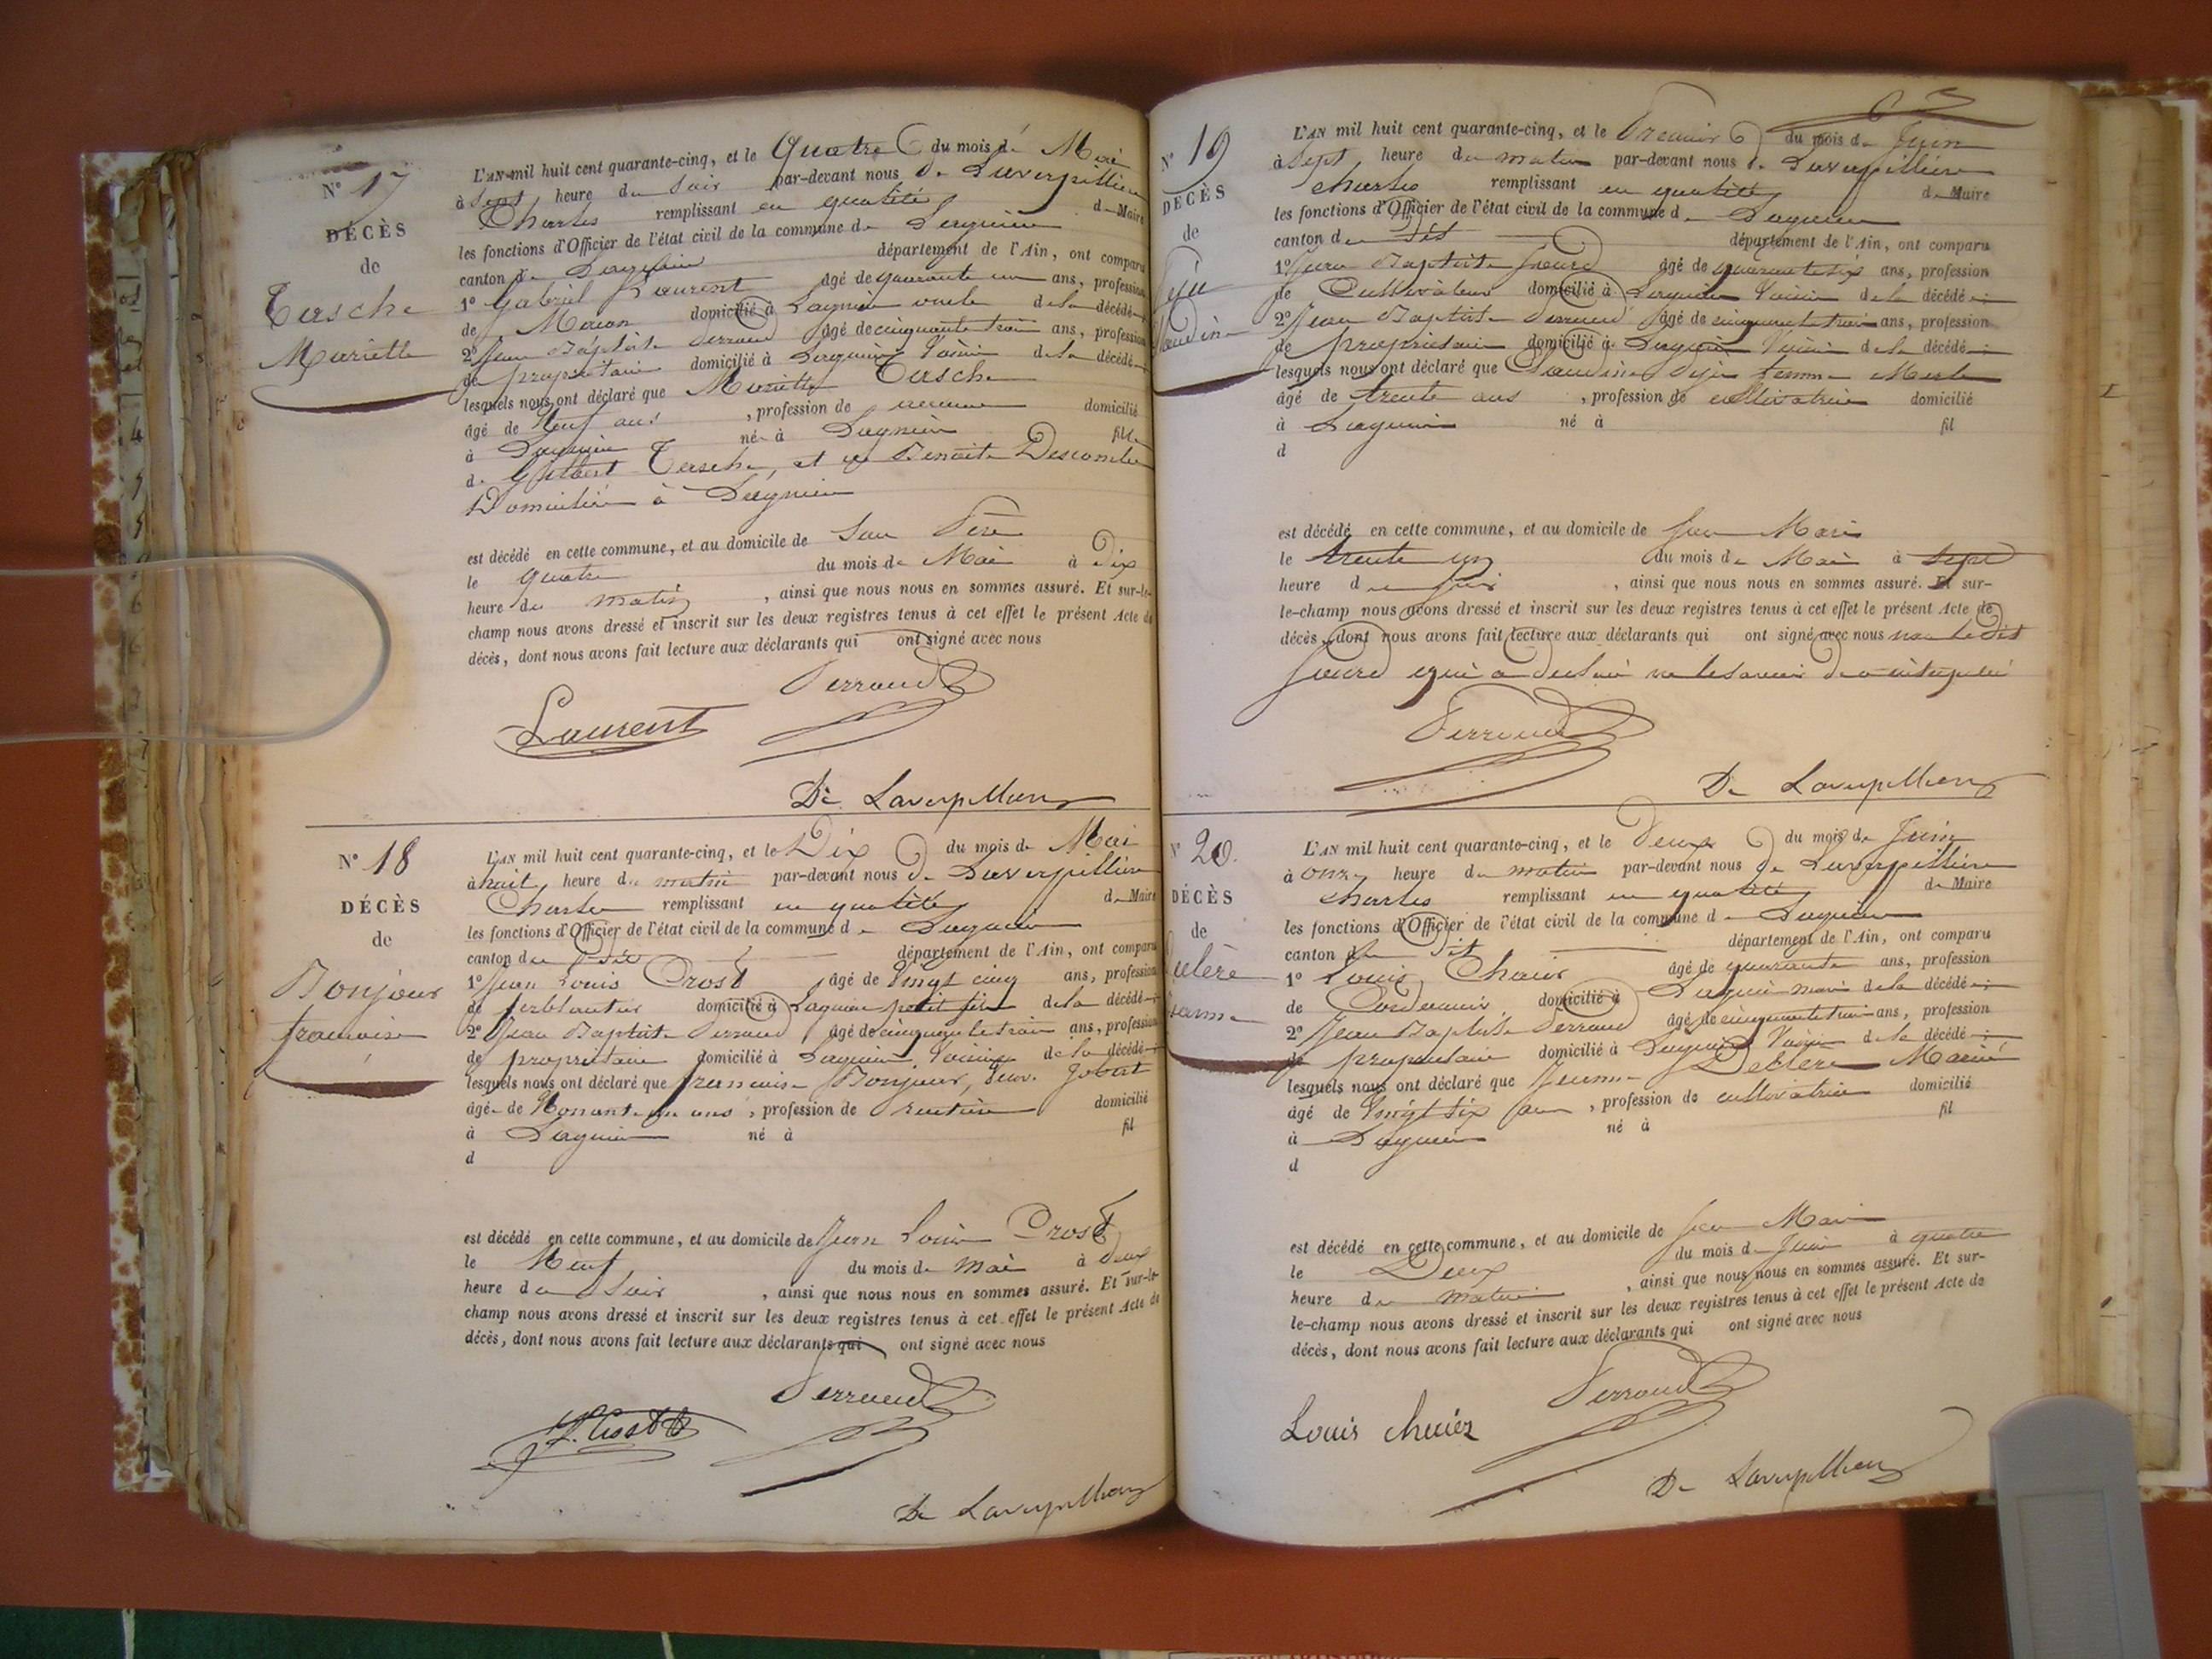 N° 17
DÉCÈS
de
Tasche
Mariette
L'AN mil huit cent quarante-cinq, et le Quatre du mois de Mai
à Sept heure du Soir par-devant nous De Laverpillière
Charles remplissant en qualité de Maire
les fonctions d'Officier de l'état civil de la commune de Lagnieu
canton de Lagnieu département de l'Ain, ont comparu
1° Gabriel Laurent âgé de quarante un ans, profession
de Macon domicilié à Lagnieu oncle de la décédé
2° Jean Baptiste Perraud âgé de cinquante trois ans, profession
de propriétaire domicilié à Lagnieu Voisin de la décédé
lesquels nous ont déclaré que Mariette Tasche
âgé de Neuf ans, profession de domicilié
à Lagnieu née à Lagnieu fille
de Tasche, et de Benoite Descombe
Domiciliés à Lagnieu
est décédé en cette commune, et au domicile de Son Père
le quatre du mois de Mai à Dix
heure du matin, ainsi que nous nous en sommes assuré. Et sur-le-
champ nous avons dressé et inscrit sur les deux registres tenus à cet effet le présent Acte de
décès, dont nous avons fait lecture aux déclarants qui ont signé avec nous
Perraud
Laurent
De Laverpilliere
N° 18
DÉCÈS
de
Bonjour
francoise
L'AN mil huit cent quarante-cinq, et le Dix du mois de Mai
à huit heure du matin par-devant nous De Laverpillière
Charles remplissant en qualité de Maire
les fonctions d'Officier de l'état civil de la commune de Lagnieu
canton du dit département de l'Ain, ont comparu
1° Jean Louis Crost âgé de Vingt cinq ans, profession
de ferblantier domicilié à Lagnieu petit fils de la décédé
2° Jean Baptiste Perraud âgé de cinquante trois ans, profession
de propriétaire domicilié à Lagnieu, Voisin de la décédé
lesquels nous ont déclaré que francoise Bonjour, veuve Jobert
âgée de Nonante un ans, profession de rentière domicilié
à Lagnieu né à fil
d
est décédé en cette commune, et au domicile de Jean Louis Crost
le Neuf du mois de Mai à deux
heure du Soir, ainsi que nous nous en sommes assuré. Et sur-le-
champ nous avons dressé et inscrit sur les deux registres tenus à cet effet le présent Acte de
décès, dont nous avons fait lecture aux déclarants qui ont signé avec nous
Perraud
De Laverpilliere
N° 19
DÉCÈS
de
L'AN mil huit cent quarante-cinq, et le Premier du mois de Juin
à Sept heure du matin par-devant nous De Laverpillière
Charles remplissant en qualité de Maire
les fonctions d'Officier de l'état civil de la commune de Lagnieu
canton du dit département de l'Ain, ont comparu
1° Jean Baptiste âgé de quarante six ans, profession
de Cultivateur domicilié à Lagnieu Voisin de la décédé
2° Jean Baptiste Perraud âgé de cinquante trois ans, profession
de propriétaire domicilié à Lagnieu Voisin de la décédé
lesquels nous ont déclaré que Claudine femme
âgé de trente ans, profession de cultivatrice domicilié
à Lagnieu né à fil
d
est décédé en cette commune, et au domicile de Son Mari
le trente un du mois de Mai à Sept
heure du soir, ainsi que nous nous en sommes assuré. Et sur-
le-champ nous avons dressé et inscrit sur les deux registres tenus à cet effet le présent Acte de
décès, dont nous avons fait lecture aux déclarants qui ont signé avec nous non le dit
qui a déclaré ne le savoir de ce interpellé
Perraud
De Laverpilliere
N° 20.
DÉCÈS
de
L'AN mil huit cent quarante-cinq, et le Deux du mois de Juin
à onze heure du matin par-devant nous De Laverpillière
Charles remplissant en qualité de Maire
les fonctions d'Officier de l'état civil de la commune de Lagnieu
canton du dit département de l'Ain, ont comparu
1° Louis âgé de quarante ans, profession
de Cordonnier domicilié à Lagnieu mari de la décédé
2° Jean Baptiste Perraud âgé de cinquante trois ans, profession
de propriétaire domicilié à Lagnieu Voisin de la décédé
lesquels nous ont déclaré que Jeanne Declère Mariée
âgé de Vingt six ans, profession de cultivatrice domicilié
à Lagnieu né à fil
d
est décédé en cette commune, et au domicile de Son Mari
le Deux du mois de Juin à quatre
heure du matin, ainsi que nous nous en sommes assuré. Et sur-
le-champ nous avons dressé et inscrit sur les deux registres tenus à cet effet le présent Acte de
décès, dont nous avons fait lecture aux déclarants qui ont signé avec nous
Perraud
Louis
De Laverpilliere